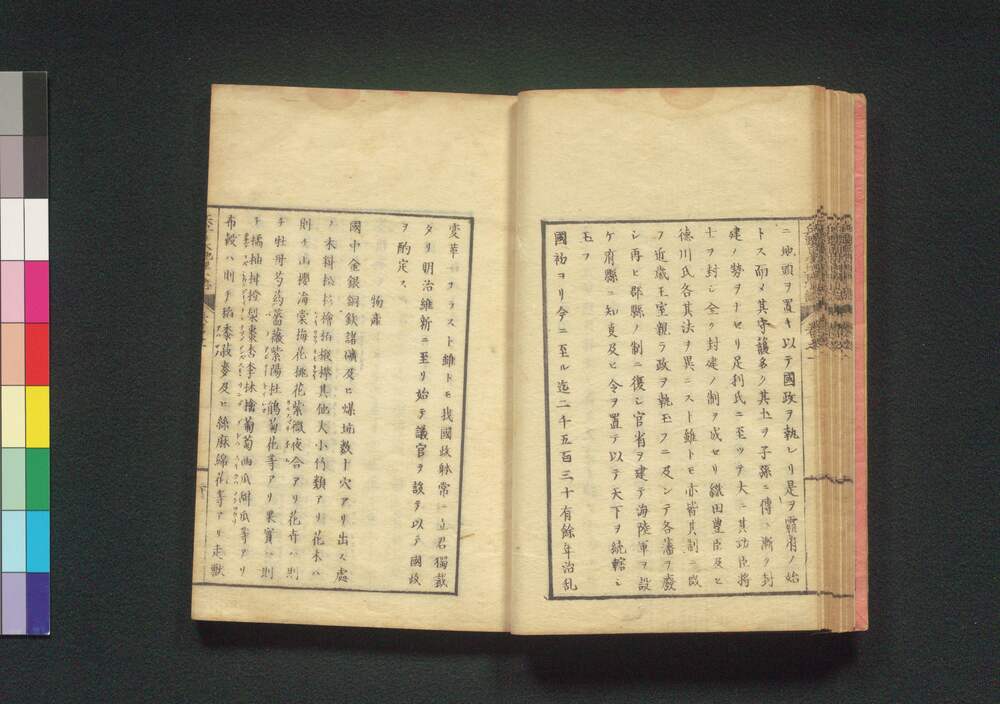 ニ地頭ヲ置キ以テ國政ヲ執レリ是ヲ霸府ノ始
トス而〆其守護多ク其土ヲ子孫ニ傳ヘ漸ク封
建ノ勢ヲナセリ足利氏ニ至ツテ大ニ其功臣將
士ヲ封シ全ク封建ノ制ヲ成セリ織田豐臣及ヒ
德川氏各其法ヲ異ニスト雖トモ亦皆其制ニ
フ近歳王室親ラ政ヲ執玉フニ及ンテ各藩ヲ廢
シ再ヒ郡縣ノ制ニ復シ官省ヲ建テ海陸軍ヲ設
ケ府縣ニ知事及ヒ令ヲ置テ以テ天下ヲ統轄シ
玉フ
國初ヨリ今ニ至ル迄二千五百三十有餘年治亂
變革一ナラスト雖トモ我國政躰常ニ立君獨裁
タリ明治維新ニ至リ始テ議官ヲ設テ以テ國政
ヲ酌定ス
物產
國中金銀銅鉄諸礦及ヒ煤坑数十穴アリ出ス處
ノ木料松杉檜柏 其他大小竹類アリ花木ハ
則チ山櫻海棠梅花桃花紫薇夜合アリ花卉ハ則
チ牡丹芍药薔薇紫陽杜鵑菊花等アリ果實ハ則
チ橘柚柑橙梨棗杏李 葡萄西瓜甜瓜等アリ
布穀ハ則チ稻黍菽麥及ヒ絲麻綿花等アリ走獸